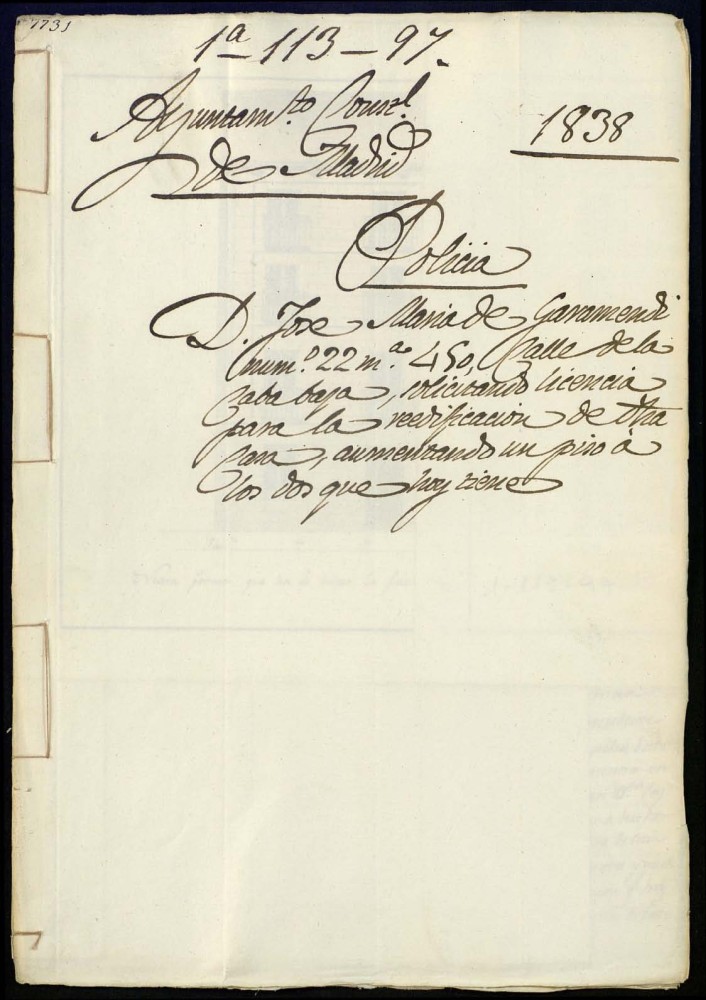 1ª-113-97.
Ayuntamto Const.l
de Madrid
1838
Policia
D. Jose Maria de Garamendi
num.º 22 m.ª 150, Calle de la
Caba baja, solicitando licencia
para la reedificacion de dha
Casa, aumentando un piso à
los dos que hoy tiene